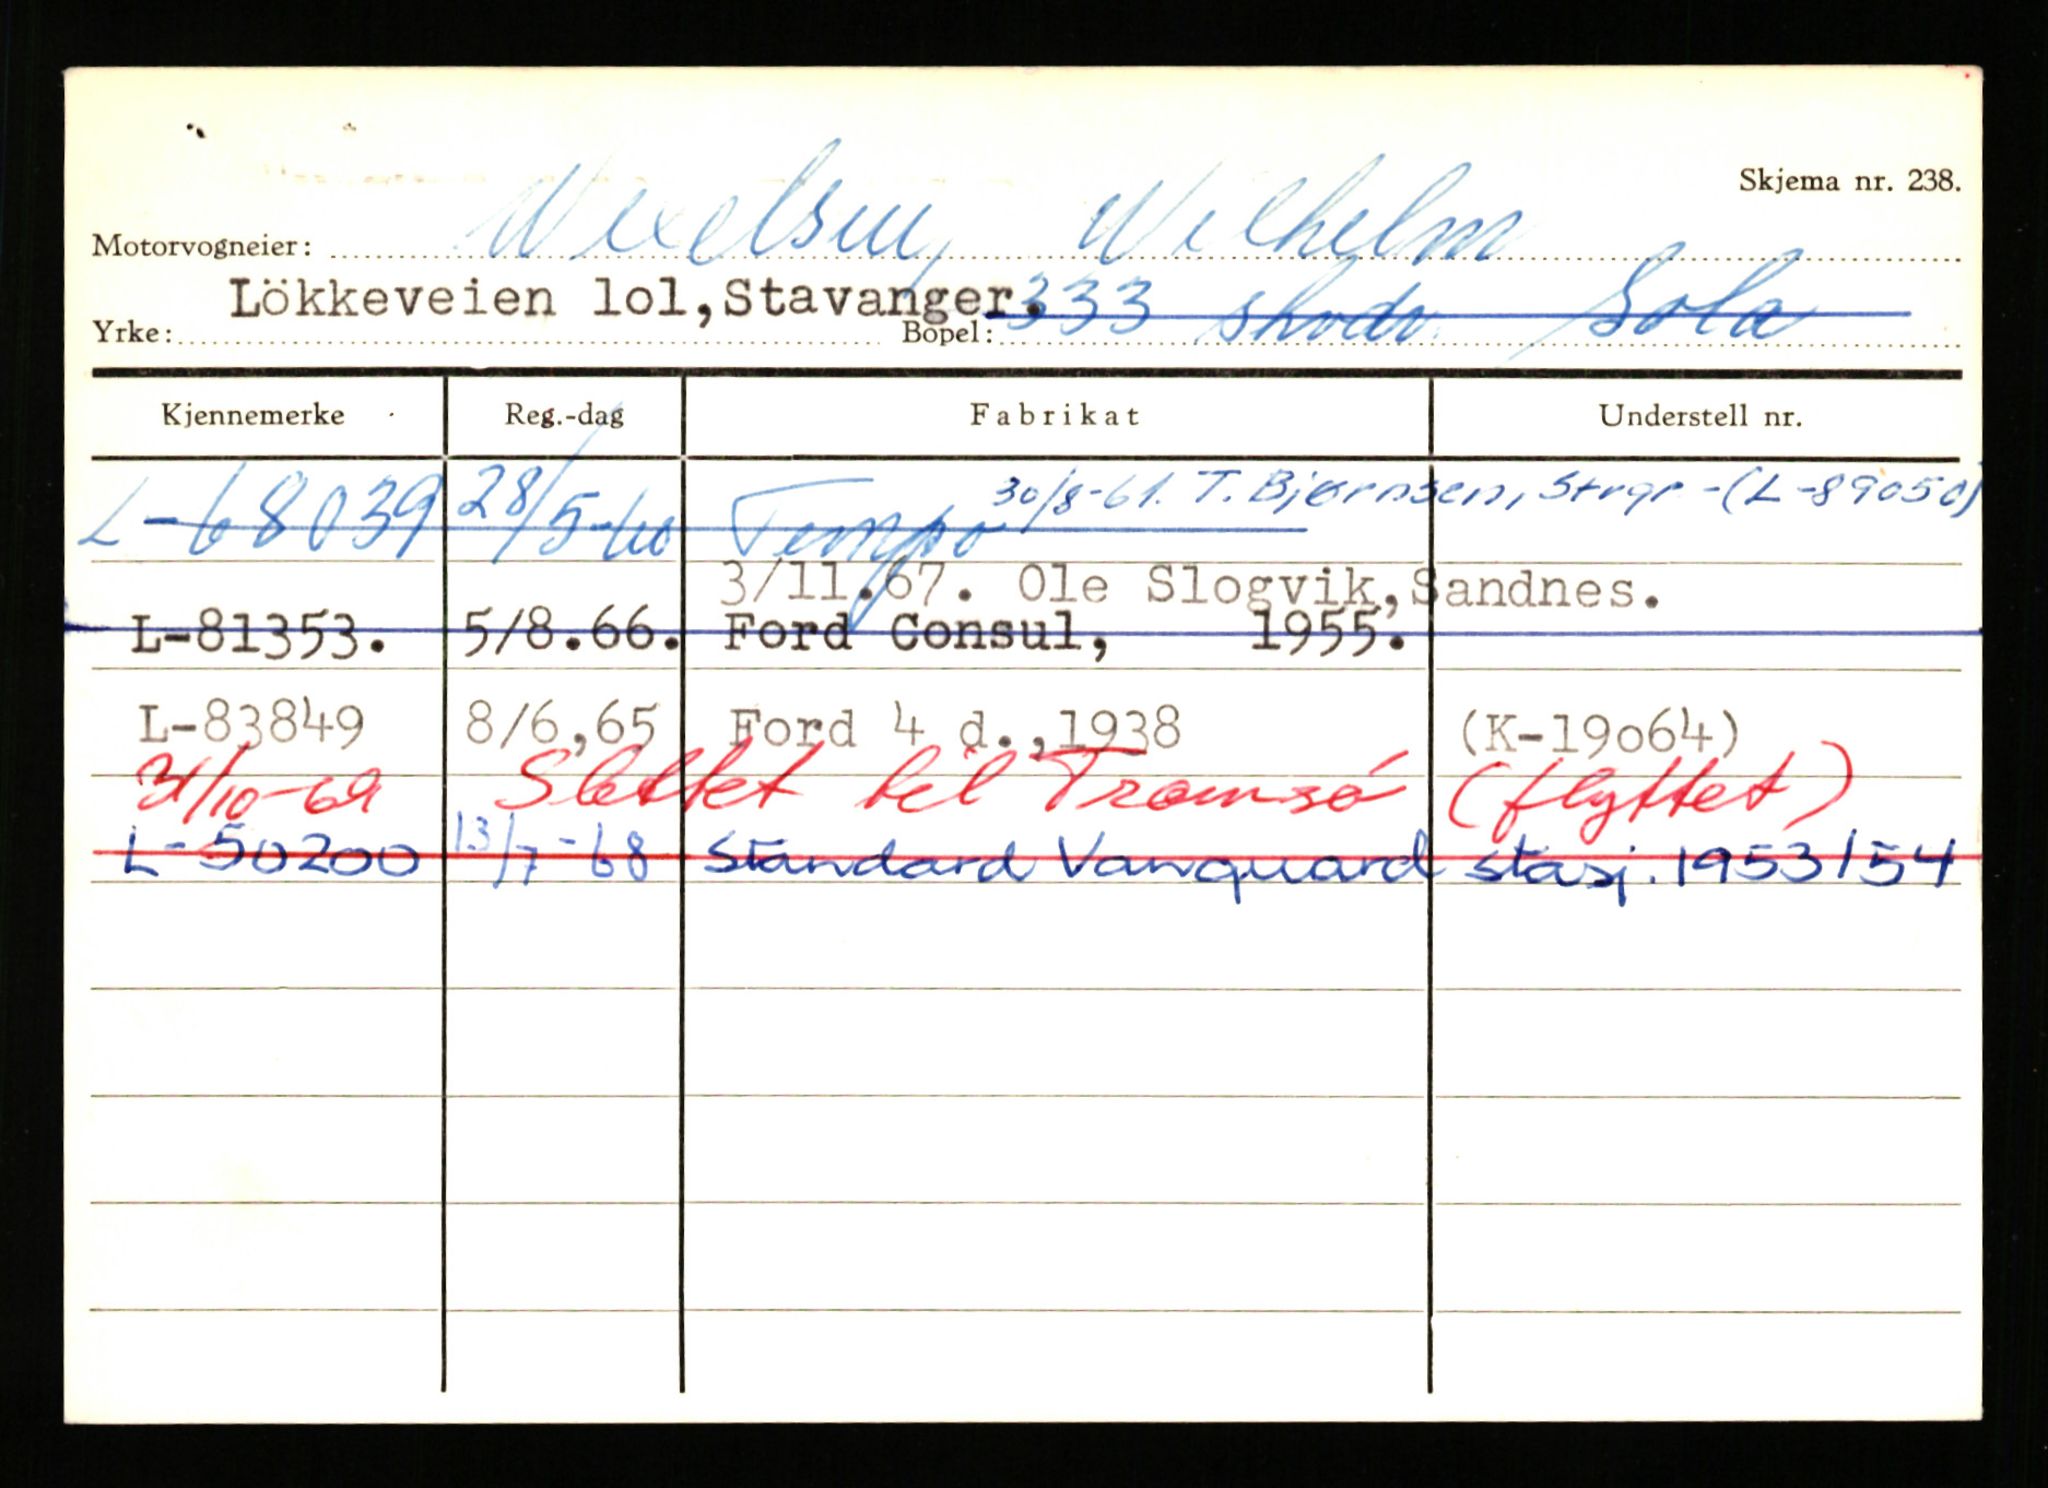 Skjema nr. 238.
Motorvogneier: Wexelsen, Wilhelm
Lökkeveien lol,Stavanger. 333 skvdr. Sola
Yrke: Bopel:
Kjennemerke Reg.-dag Fabrikat Understell nr.
30/8-61. T. Bjørnsen, Strgr - (L-89050)
L-68039 28/5-60 Tempo
3/11.67. Ole Slogvik,Sandnes.
L-81353. 5/8.66. Ford Consul, 1955.
L-83849 8/6,65 Ford 4 d.,1938 (K-19o64)
31/10-69 Slettet til Tromsø (flyttet)
L-50200 13/7-68 Standard Vanquard stasj. 1953/54